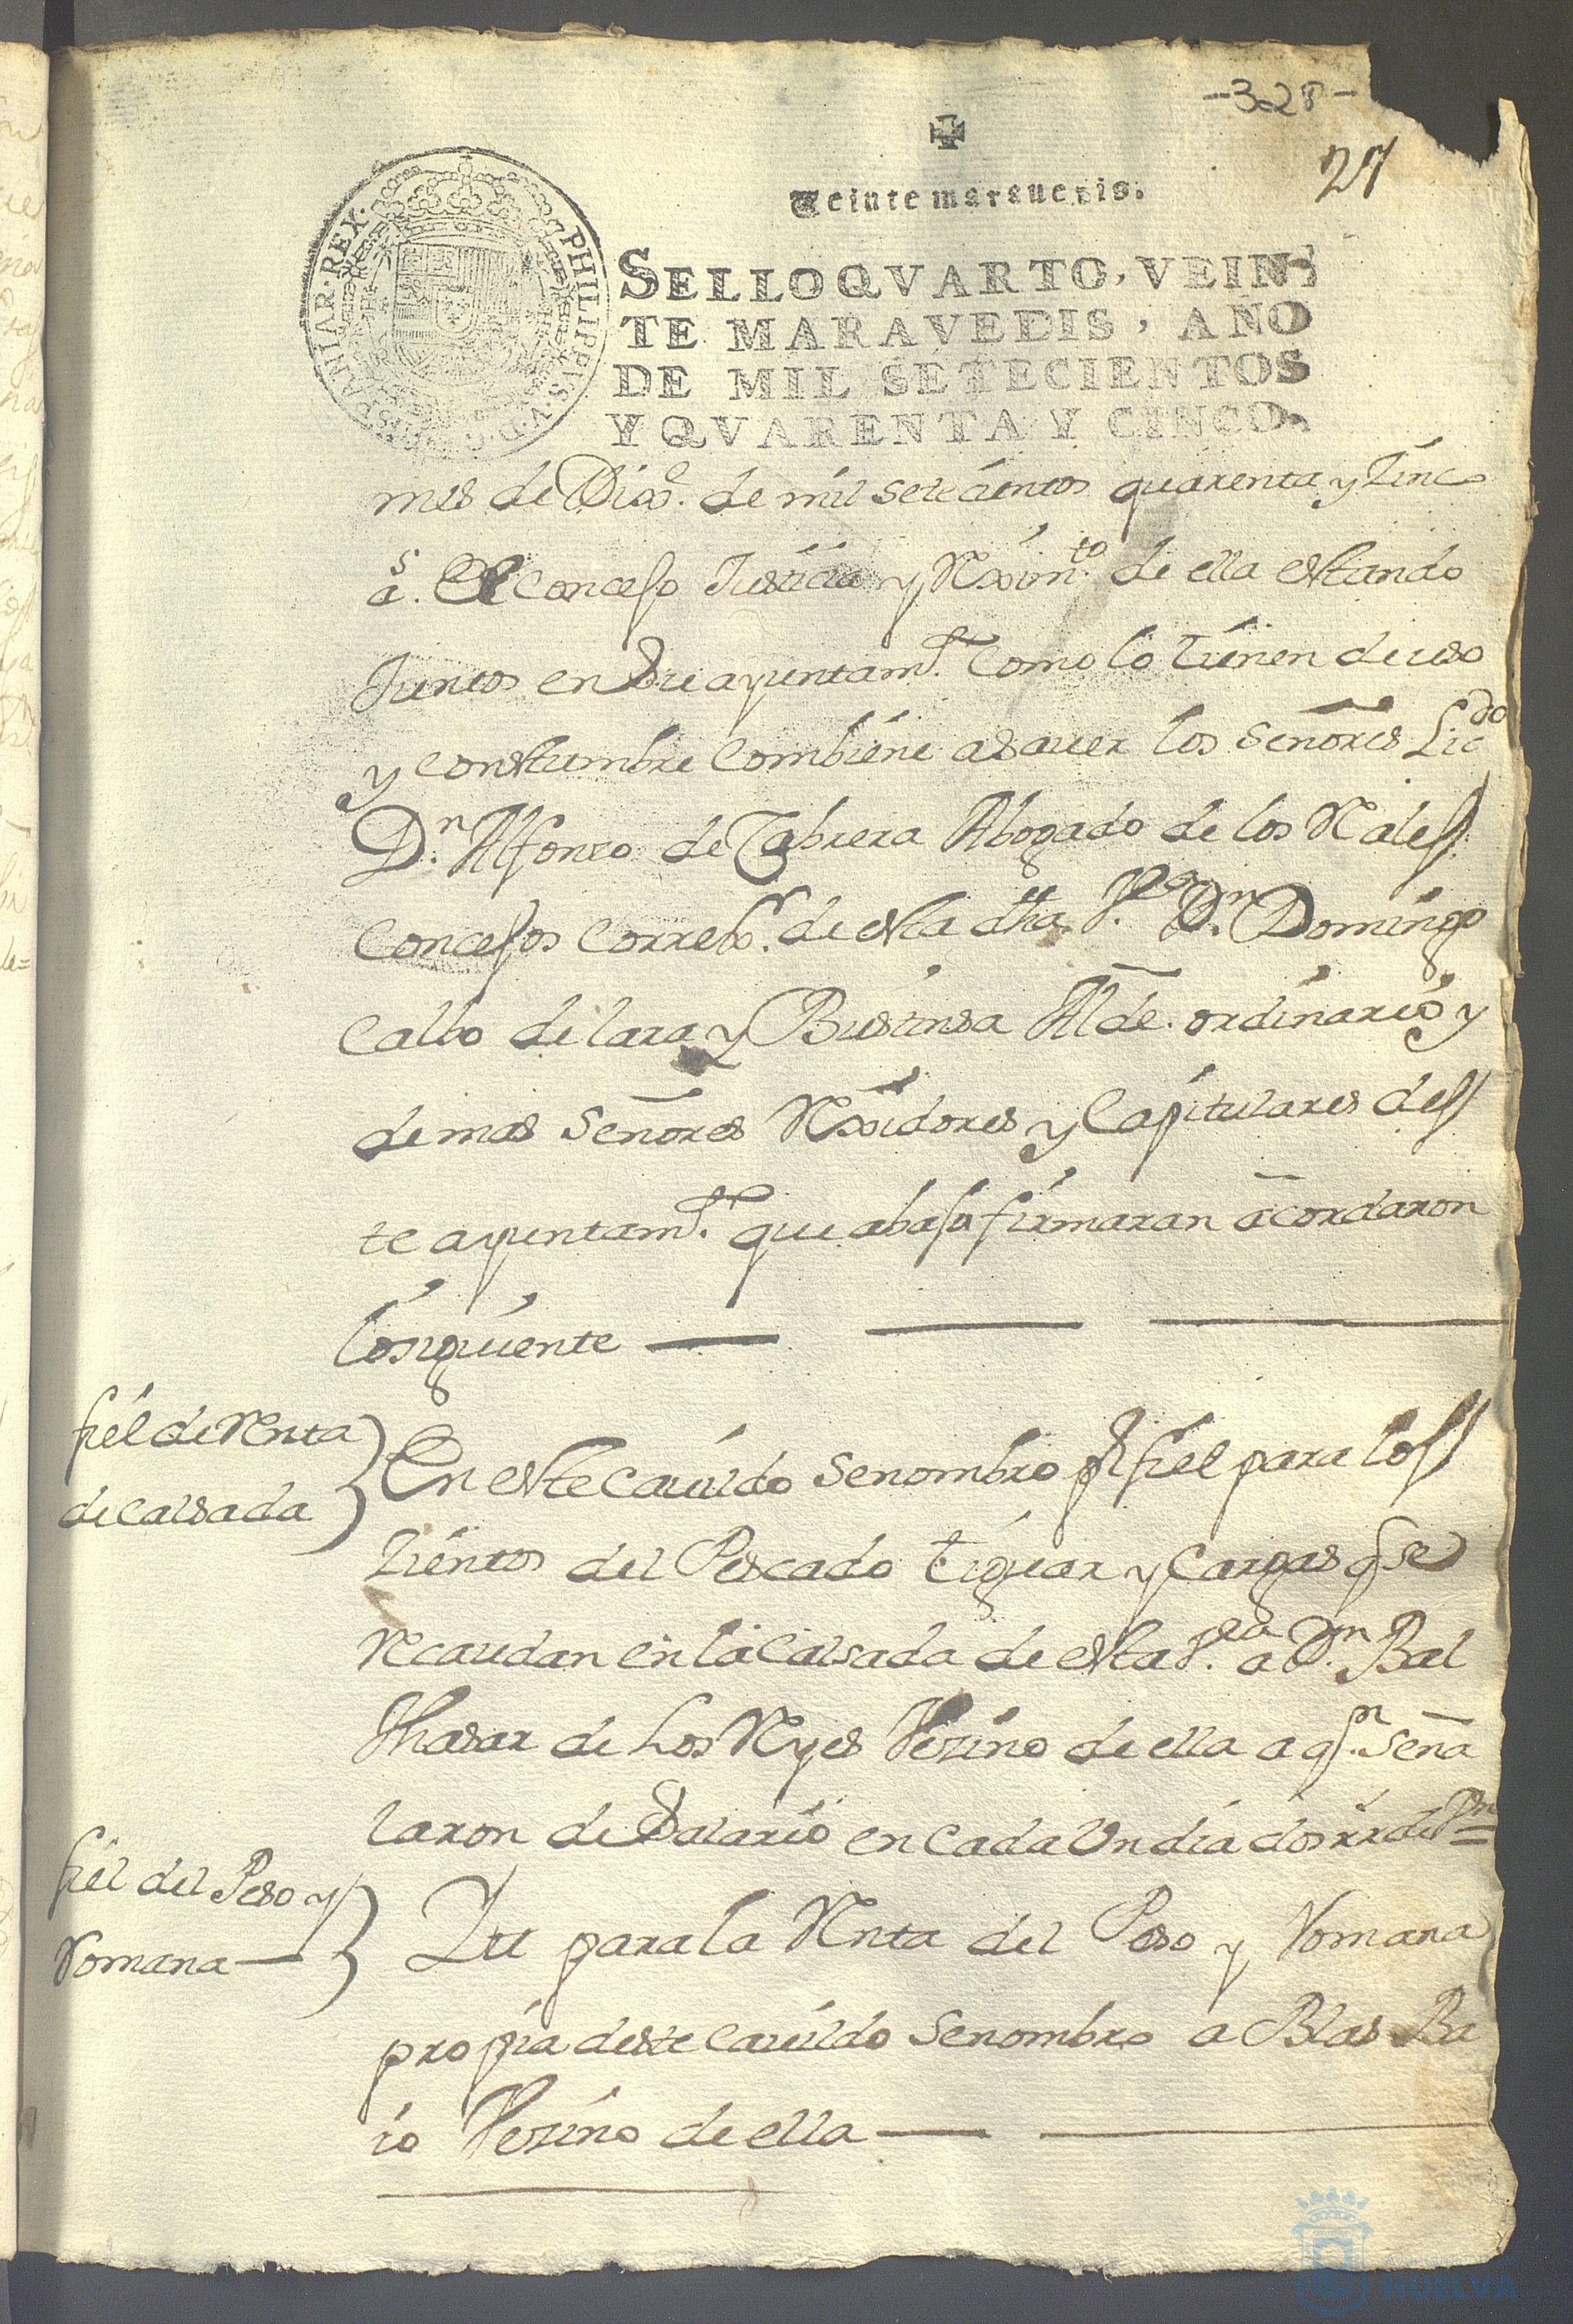 -328-
27
Veinte maravedis.
SELLO QVARTO, VEIN-
TE MARAVEDIS, AÑO
DE MIL SETECIENTOS
Y QVARENTA Y CINCO.
PHILIPPVS·V·D·G· HISPANIAR·REX·
mes de Dixe. de mil setecientos quarenta y Zinco
as. El Concejo Justicia y Rexim.to de ella estando
Juntos en Su ayuntam.to Como lo tienen de uso
y Constumbre Combiene asauer los Señores Lic.do
D.n Alfonso de Cabrera Abogado de los R.ales
Concejos Correx.r de esta dha V.a D.n Domingo
Calbo de lara y Businsa Alde. ordinario y
demas Señores Rexidores y Capitulares des
te ayuntam.to que abajo firmaran acordaron
lo siguiente
fiel de Renta
de calsada
En este Cauildo Se nombro pr fiel para los
Zientos del Pescado tiguar y Cargas q se
Recaudan en la Calsada de esta V.a a D.n Bal
thasar de Los Reyes Vezino de ella a q.n Seña
laron de Salario en Cada Un dia dos rr de Vn=
fiel del Peso y
Romana
Ytt para la Renta del Peso y Romana
propia deste Cauildo Se nombro a Blas Ba
io Vezino de ella
HUELVA